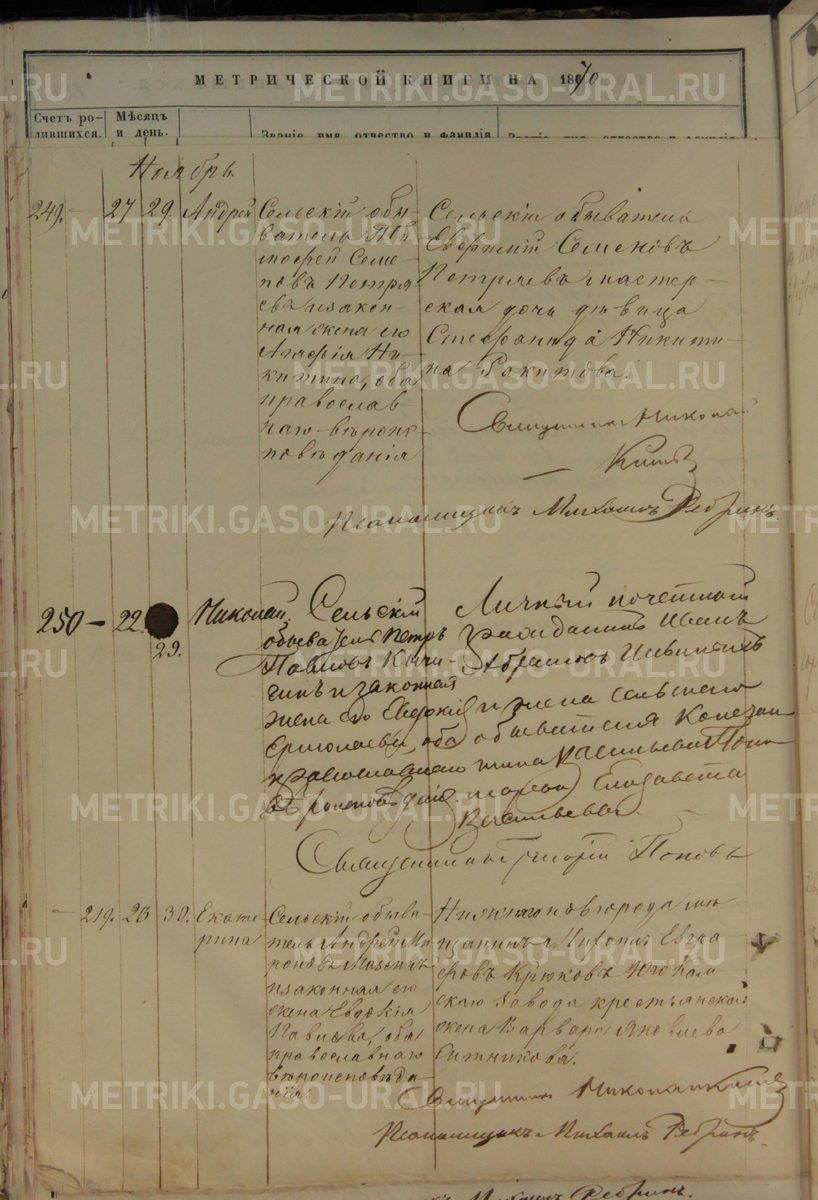 МЕТРИЧЕСКОЙ КНИГИ НА 1870
Счетъ ро-
дившихся.
Мѣсяцъ
и день.
Званіе, имя, отчество и фамилія
Ноябрь.
249. — 27 29. Андрей
Сельскій обы-
ватель Ти-
мофей Семе-
новъ Петря-
евъ и закон-
ная жена его
Агафія Ни-
китина, оба
православ-
наго вѣроис-
повѣданія
Сельскій обыватель
Семеновъ
Петряевъ и мастер-
ская дочь дѣвица
Стефанида Никити-
на Ракитова.
Священникъ Николай
Псаломщикъ Михаилъ Ребринъ.
250 — 22. 29. Николай,
Сельскій
обыватель Петръ
Павловъ
и законная
жена его Евдокія
Ермолаева, оба
православнаго
вѣроисповѣданія.
Личный почетный
гражданинъ Иванъ
Абрамовъ
и жена сельскаго
обывателя
Елизавета
Васильева.
Священникъ Григорій Поповъ
— 219. 23 30. Екате-
рина
Сельскій обыва-
тель Андрей Ми-
роновъ
и законная его
жена Евдокія
Павлова, оба
православнаго
вѣроисповѣда-
нія.
Нижняго новгорода мѣ-
щанинъ Михаилъ Евгра-
фовъ Крюковъ Юго Кам-
скаго завода крестьянская
жена Варвара Яковлева
Ситникова.
Священникъ Николай
Псаломщикъ Михаилъ Ребринъ.
METRIKI.GASO-URAL.RU